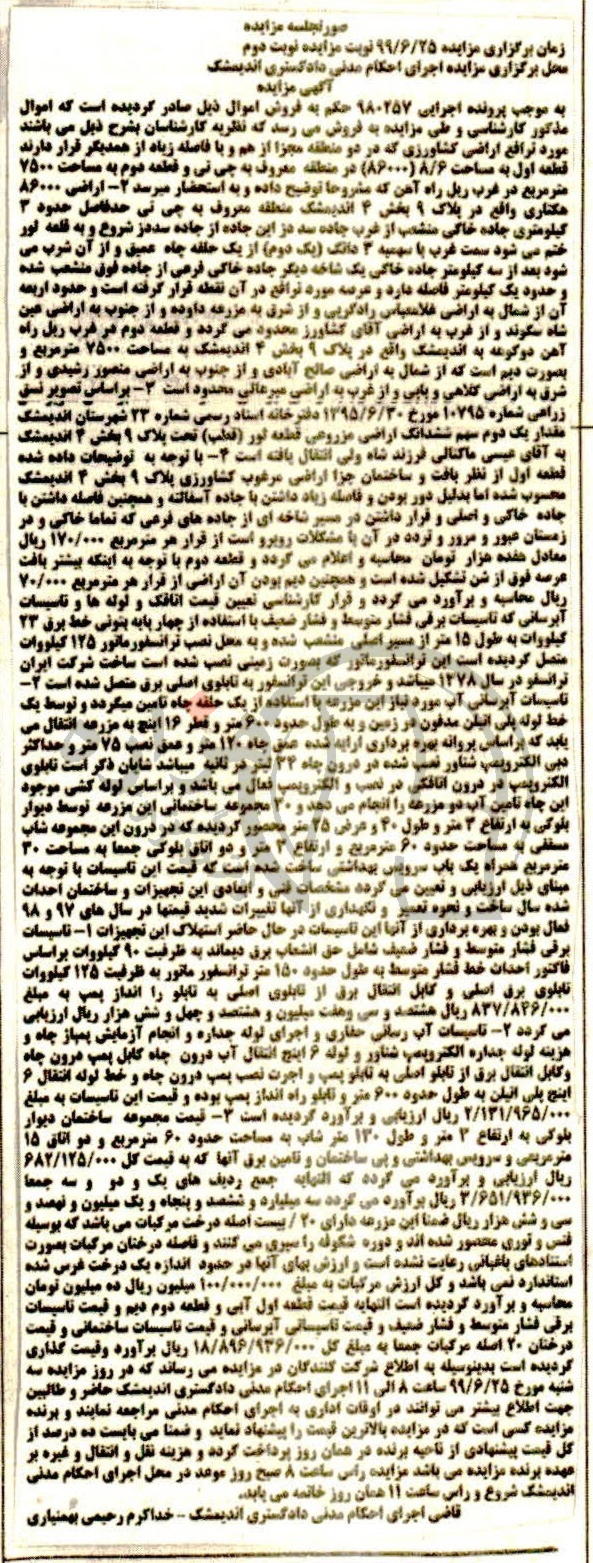 صورتجلسه مزایده
زمان برگزاری مزایده ۹۹/۶/۲۵ نوبت مزایده نوبت دوم
محل برگزاری مزایده اجرای احکام مدنی دادگستری اندیمشک
آگهی مزایده
به موجب پرونده اجرایی ۹۸۰۲۵۷ حکم به فروش اموال ذیل صادر گردیده است که اموال
مذکور کارشناسی و طی مزایده به فروش می رسد که نظریه کارشناسان بشرح ذیل می باشند
مورد ترافع اراضی کشاورزی که در دو منطقه مجزا از هم و با فاصله زیاد از همدیگر قرار دارند
قطعه اول به مساحت ۸/۶ (۸۶۰۰۰) در منطقه معروف به چی تی و قطعه دوم به مساحت ۷۵۰۰
مترمربع در غرب ریل راه آهن که مشروحا توضیح داده و به استحضار میرسد ۲- اراضی ۸۶۰۰۰
هکتاری واقع در پلاک ۹ بخش ۴ اندیمشک منطقه معروف به چی تی حدفاصل حدود ۳
کیلومتری جاده خاکی منشعب از غرب جاده سد دز این جاده از جاده سددز شروع و به قلعه لور
ختم می شود سمت غرب با سهمیه ۳ دانگ (یک دوم) از یک حلقه چاه عمیق و از آن شرب می
شود بعد از سه کیلومتر جاده خاکی یک شاخه دیگر جاده خاکی فرعی از جاده فوق منشعب شده
و حدود یک کیلومتر فاصله دارد و عرصه مورد ترافع در آن نقطه قرار گرفته است و حدود اربعه
آن از شمال به اراضی غلامعباس رادگریی و از شرق به مزرعه داوده و از جنوب به اراضی عین
شاه سگوند و از غرب به اراضی آقای کشاورز محدود می گردد و قطعه دوم هر غرب ریل راه
آهن دوکوهه به اندیمشک واقع در پلاک ۹ بخش ۴ اندیمشک به مساحت ۷۵۰۰ مترمربع و
بصورت دیم است که از شمال به اراضی صالح آبادی و از جنوب به اراضی منصور رشیدی و از
شرق به اراضی کلاهی و پاپی و از غرب به اراضی میرعالی محدود است ۳- براساس تصویر نسق
زراعی شماره ۱۰۷۹۵ مورخ ۱۳۹۵/۶/۳۰ دفترخانه اسناد رسمی شماره ۲۳ شهرستان اندیمشک
مقدار یک دوم سهم ششدانگ اراضی مزروعی قطعه لور (قطب) تحت پلاک ۹ بخش ۴ اندیمشک
به آقای عیسی ماکنالی فرزند شاه ولی انتقال یافته است ۴- با توجه به توضیحات داده شده
قطعه اول از نظر بافت و ساختمان جزا اراضی مرغوب کشاورزی پلاک ۹ بخش ۴ اندیمشک
محسوب شده اما بدلیل دور بودن و فاصله زیاد داشتن با جاده آسفالته و همچنین فاصله داشتن با
جاده خاکی و اصلی و قرار داشتن در مسیر شاخه ای از جاده های فرعی که تماما خاکی و در
زمستان عبور و مرور و تردد در آن با مشکلات روبرو است از قرار هر مترمربع ۱۷۰/۰۰۰ ریال
معادل هفده هزار تومان محاسبه و اعلام می گردد و قطعه دوم با توجه به اینکه بیشتر بافت
عرصه فوق از شن تشکیل شده است و همچنین دیم بودن آن اراضی از قرار هر مترمربع ۷۰/۰۰۰
ریال محاسبه و برآورد می گردد و قرار کارشناسی تعیین قیمت اتاقک و لوله ها و تاسیسات
آبرسانی که تاسیسات برقی فشار متوسط و فشار ضعیف با استفاده از چهار پایه بتونی خط برق ۲۳
کیلووات به طول ۱۵ متر از مسیر اصلی منشعب شده و به محل نصب ترانسفورماتور ۱۲۵ کیلووات
متصل گردیده است این ترانسفورماتور که بصورت زمینی نصب شده است ساخت شرکت ایران
ترانسفو در سال ۱۳۷۸ میباشد و خروجی این ترانسفور به تابلوی اصلی برق متصل شده است ۲-
تاسیسات آبرسانی آب مورد نیاز این مزرعه با استفاده از یک حلقه چاه تامین میگردد و توسط یک
خط لوله پلی اتیلن مدفون در زمین و به طول حدود ۶۰۰ متر و قطر ۱۶ اینچ به مزرعه انتقال می
یابد که براساس پروانه بهره برداری ارایه شده عمق چاه ۱۲۰ متر و عمق نصب ۷۵ متر و حداکثر
دبی الکتروپمپ شناور نصب شده در درون چاه ۳۴ لیتر در ثانیه میباشد شایان ذکر است تابلوی
الکتروپمپ در درون اتاقکی در نصب و الکتروپمپ فعال می باشد و براساس لوله کشی موجود
این چاه تامین آب دو مزرعه را انجام می دهد و ۳۰ مجموعه ساختمانی این مزرعه توسط دیوار
بلوکی به ارتفاع ۳ متر و طول ۴۰ و عرض ۲۵ متر محصور گردیده که در درون این مجموعه شاب
مسقفی به مساحت حدود ۶۰ مترمربع و ارتفاع ۳ متر و دو اتاق بلوکی جمعا به مساحت ۳۰
مترمربع همراه یک باب سرویس بهداشتی ساخت شده است که قیمت این تاسیسات با توجه به
مبنای ذیل ارزیابی و تعیین می گردد مشخصات فنی و ابعادی این تجهیزات و ساختمان احداث
شده سال ساخت و نحوه تعمیر و نگهداری از آنها تغییرات شدید قیمتها در سال های ۹۷ و ۹۸
فعال بودن و بهره برداری از آنها این تاسیسات در حال حاضر استهلاک این تجهیزات ۱- تاسیسات
برقی فشار متوسط و فشار ضعیف شامل حق انشعاب برق دیماند به ظرفیت ۹۰ کیلووات براساس
فاکتور احداث خط فشار متوسط به طول حدود ۱۵۰ متر ترانسفور ماتور به ظرفیت ۱۲۵ کیلووات
تابلوی برق اصلی و کابل انتقال برق از تابلوی اصلی به تابلو را انداز پمپ به مبلغ
۸۳۷/۸۴۶/۰۰۰ ریال هشتصد و سی وهفت میلیون و هشتصد و چهل و شش هزار ریال ارزیابی
می گردد ۲- تاسیسات آب رسانی حفاری و اجرای لوله جداره و انجام آزمایش پمپاژ چاه و
هزینه لوله جداره الکتروپمپ شناور و لوله ۶ اینچ انتقال آب درون چاه کابل پمپ درون چاه
وکابل انتقال برق از تابلو اصلی به تابلو پمپ و اجرت نصب پمپ درون چاه و خط لوله انتقال ۶
اینچ پلی اتیلن به طول حدود ۶۰۰ متر و تابلو راه انداز پمپ بوده و قیمت این تاسیسات به مبلغ
۲/۱۳۱/۹۶۵/۰۰۰ ریال ارزیابی و برآورد گردیده است ۳- قیمت مجموعه ساختمان دیوار
بلوکی به ارتفاع ۳ متر و طول ۱۳۰ متر شاب به مساحت حدود ۶۰ مترمربع و دو اتاق ۱۵
مترمربعی و سرویس بهداشتی و پی ساختمان و تامین برق آنها که به قیمت کل ۶۸۲/۱۲۵/۰۰۰
ریال ارزیابی و برآورد می گردد که النهایه جمع ردیف های یک و دو و سه جمعا
۳/۶۵۱/۹۳۶/۰۰۰ ریال برآورد می گردد سه میلیارد و ششصد و پنجاه و یک میلیون و نهصد و
سی و شش هزار ریال ضمنا این مزرعه دارای ۲۰ / بیست اصله درخت مرکبات می باشد که بوسیله
فنس و توری محصور شده اند و دوره شکوفه را سپری می کنند و فاصله درختان مرکبات بصورت
استنادهای باغبانی رعایت نشده است و ارزش بهای آنها در حدود اندازه یک درخت غرس شده
استاندارد نمی باشد و کل ارزش مرکبات به مبلغ ۱۰۰/۰۰۰/۰۰۰ میلیون ریال ده میلیون تومان
محاسبه و برآورد گردیده است النهایه قیمت قطعه اول آبی و قطعه دوم دیم و قیمت تاسیسات
برقی فشار متوسط و فشار ضعیف و قیمت تاسیساتی آبرسانی و قیمت تاسیسات ساختمانی و قیمت
درختان ۲۰ اصله مرکبات جمعا به مبلغ کل ۱۸/۸۹۶/۹۳۶/۰۰۰ ریال برآورد وقیمت گذاری
گردیده است بدینوسیله به اطلاع شرکت کنندگان در مزایده می رساند که در روز مزایده سه
شنبه مورخ ۹۹/۶/۲۵ ساعت ۸ الی ۱۱ اجرای احکام مدنی دادگستری اندیمشک حاضر و طالبین
جهت اطلاع بیشتر می توانند در اوقات اداری به اجرای احکام مدنی مراجعه نمایند و برنده
مزایده کسی است که در مزایده بالاترین قیمت را پیشنهاد نماید و ضمنا می بایست ده درصد از
کل قیمت پیشنهادی از ناحیه برنده در همان روز پرداخت گردد و هزینه نقل و انتقال و غیره بر
عهده برنده مزایده می باشد مزایده راس ساعت ۸ صبح روز موعد در محل اجرای احکام مدنی
اندیمشک شروع و راس ساعت ۱۱ همان روز خاتمه می یابد.
قاضی اجرای احکام مدنی دادگستری اندیمشک - خداکرم رحیمی بهمنیاری